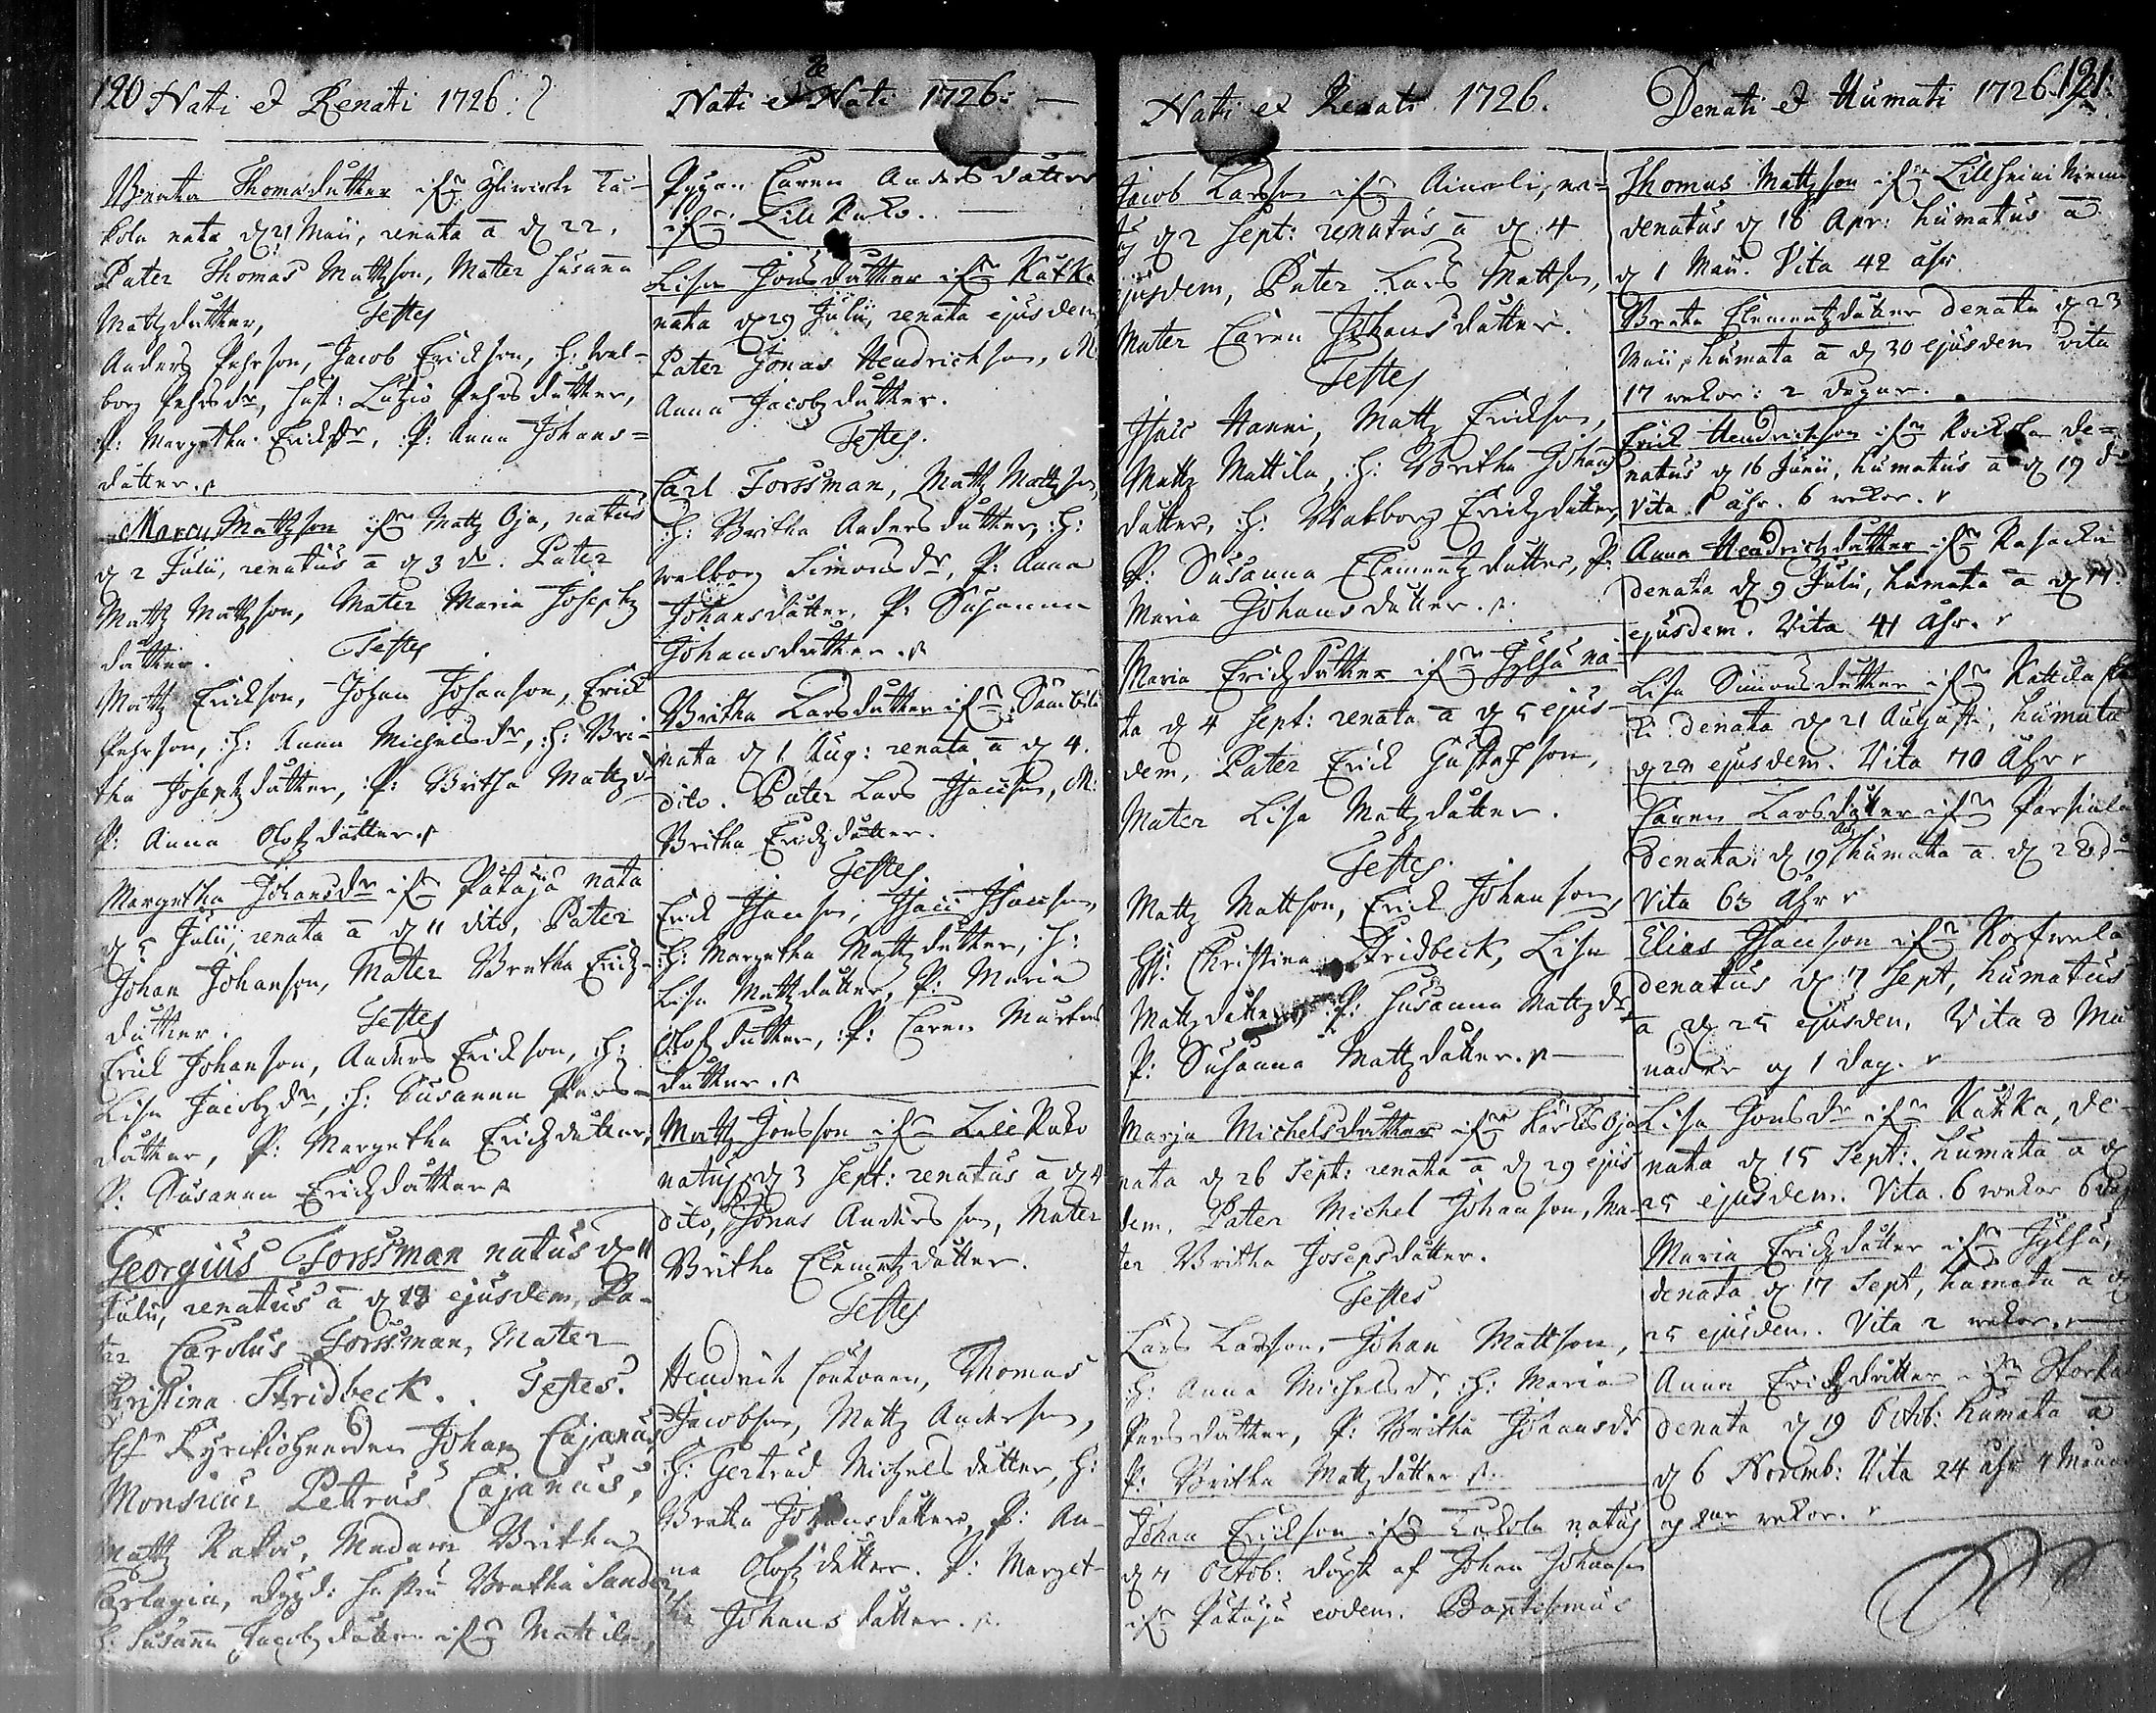 120 Nati et Renati 1726:
Breta Thomædutter ifrn
kola nata d 21 Maii, renata ā d 22.
Pater Thomas Mattzson, Mater Susanna
Mattzdutter, Testes
Anders Pehrson, Jacob Erickson, H: Wal-
borg Pehrsdr, Hust: Lutzio Pehrsdutter,
P: Margetha Ericksdr, P: Anna Johans=
dutter.
Marcus Mattzson ifrn Mattz Oja, natus
d 2 Julii, renatus ā d 3 do. Pater
Mattz Mattzson, Mater Maria Josephz
dutter. Testes
Mattz Erickson, Johan Johanson, Erick
Pehrson, H: Anna Michelsdr, H: Bri-
tha Josephzdutter, P: Britha Mattzd
P: Anna Olofzdutter.
Margetha Johansdr ifrn Pataja nata
d 5 Julii, renata ā d 11 dito, Pater
Johan Johanson, Mater Bretha Erickz-
dutter. Testes
Erick Johanson, Anders Erickson, H:
Lisa Jacobzdr, H: Susanna Pers-
dutter, P: Margetha Erickzdutter,
P: Susanna Erickzdutter
Georgius Forssman natus d 11
Julii, renatus ā d 13 ejusdem, Pa-
ter Carolus Forssman, Mater
Christina Stridbeck. Testes.
Kyrkioherden Johan Cajanus
Monsieur Petrus Cajanus,
Mattz Rakos, Madam Britha
Carlagia, Dygd: Bretha Sander
H: Susanna Jacobzdutter ifrn Mattila,
Nati et Renati 1726:
Pygan Caren Andersdatter
ifrn Lill Ruko.
Lisa Jonsdutter ifrn Kukka
nata d 29 Julii, renata ejusdem,
Pater Jonas Hendrichson, M:
Anna Jacobzdutter.
Testes.
Carl Forssman, Mattz Mattzson,
H: Britha Andersdutter, H:
Walborg Simonsdr, P: Anna
Johansdutter, P: Susanna
Johansdutter.
Britha Larsdutter ifrn
nata d 1 Aug: renata ā d 4.
dito. Pater Lars Isacson, M:
Britha Erickzdutter.
Testes.
Erick Isacson, Isac Isacson,
H: Margetha Mattzdutter, H:
Lisa Mattzdutter, P: Maria
Olofzdutter, P: Caren Markus
dutter.
Mattz Jonsson ifrn Lill Ruko
natus d 3 Sept: renatus ā d 4
dito, Pater Jonas Anderson, Mater
Britha Clemetzdutter.
Testes
Hendrich Coukonen, Thomas
Jacobson, Mattz Anderson,
H: Gertrud Michelsdutter, H:
Bretha Johansdutter, P: An-
na Olofzdutter. P: Marget-
ha Johansdutter.
Nati et Renati 1726.
Jacob Larsson ifrn Ainali, na=
tus d 2 Sept: renatus ā d 4
ejusdem, Pater Lars Mattson,
Mater Caren Johansdutter.
Testes
Isac Hanni, Mattz Erickson,
Mattz Mattila, H: Britha Johans
dutter, H: Walborg Erickzdutter,
P: Susanna Clemetzdutter, P:
Maria Johansdutter.
Maria Erickzdutter ifrn Jylhä na-
ta d 4 Sept: renata ā d 5 ejus-
dem, Pater Erick Gustafson,
Mater Lisa Mattzdutter.
Testes.
Mattz Mattson, Erick Johanson,
Christina Stridbeck, Lisa
Mattzdutter, P: Susanna Mattzdr
P: Susanna Mattzdutter.
Marja Michelsdutter ifrn Kärkis Oja
nata d 26 Sept: renata ā d 29 ejus
dem. Pater Michel Johanson, Ma-
ter Britha Josepsdutter.
Testes
Lars Larson, Johan Mattson,
H: Anna Michelsdr, H: Maria
Persdutter, P: Britha Johansdr
P: Britha Mattzdutter.
Johan Erickson ifrn Takola natus
d 4 Octob: döpt af Johan Johanson
ifrn Pataja eodem. Baptismus
Denati et Humati 1726. 121:
Thomas Mattzson ifrn Lillheini
denatus d 18 Apr: humatus ā
d 1 Maii. Vita 42 åhr
Breta Clementzdutter denata d 23
Maii, humata ā d 30 ejusdem vita
17 wekor: 2 dagar.
Erick Hendrichson ifrn de=
natus d 16 Junii, humatus ā d 19 do
Vita 1 åhr. 6 wekor.
Anna Hendrichzdutter ifrn
Denata d 9 Julii, humata ā d 17.
ejusdem. Vita 41 åhr.
Lisa Simonsdutter ifrn Kattila
denata d 21 Augusti, humata
d 28 ejusdem. Vita 70 Åhr
Caren Larsdutter ifrn
Denata d 19 humata ā d 28 do
Vita 63 åhr
Elias Isacson ifrn Kortwela
denatus d 7 Sept, humatus
ā d 25 ejusdem, Vita 8 Må
nader og 1 dag.
Lisa Jonsdr ifrn Kukka, de-
nata d 15 Sept: humata ā d
25 ejusdem. Vita 6 wekor 6 dag
Maria Erickzdutter ifrn Jylhä,
denata d 17 Sept, humata ā d
25 ejusdem. Vita 2 wekor.
Anna Erickzdutter ifrn
Denata d 19 Octob: humata ā
d 6 Novemb: Vita 24 åhr 4 Månad
og 2ne wekor.